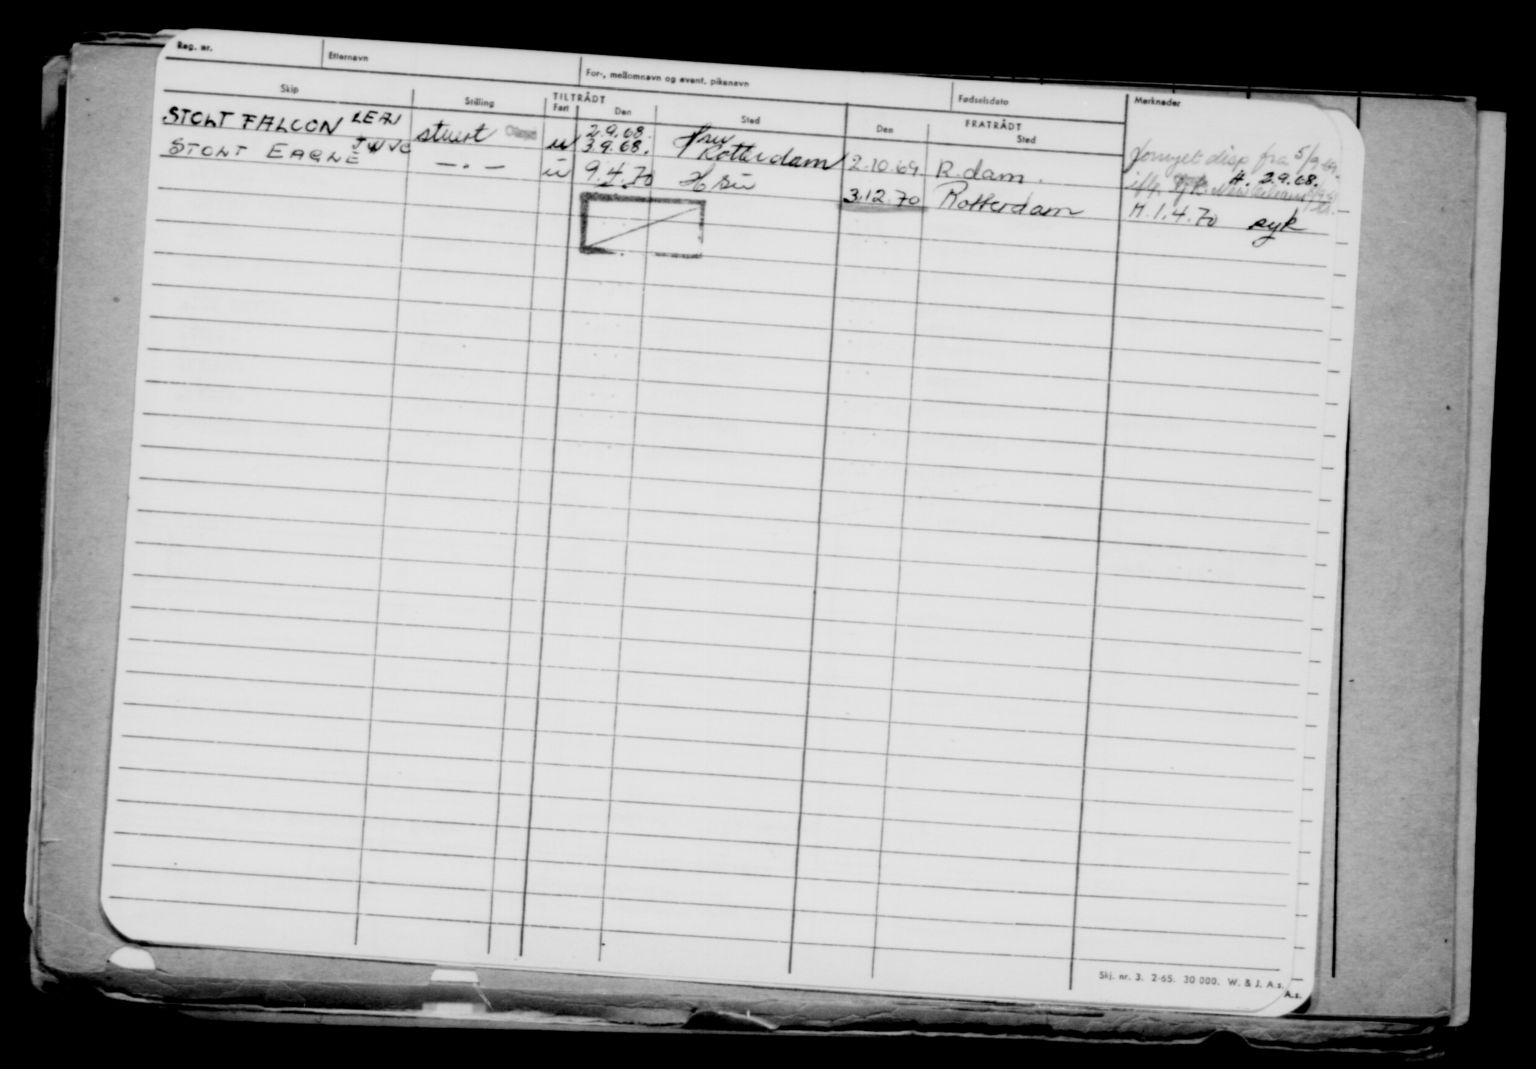 Reg. nr. Etternavn For-, mellomnavn og event. pikenavn Fødselsdato Merknader
Skip Stilling TILTRÅDT FRATRÅDT
Fart Den Sted Den Sted
STOLT FALCON LEAJ stuert u 2.9.68. Hsu
3.9.68. Rotterdam 2.10.69. R.dam. Fornyet disp fra 5/9
STOLT EAGLE JWJC — . — u 9.4.70 Hsu H. 2.9.68.
3.12.70 Rotterdam H. 1.4.70 syk
Skj. nr. 3. 2-65. 30 000. W. & J. A.s.
A.s.